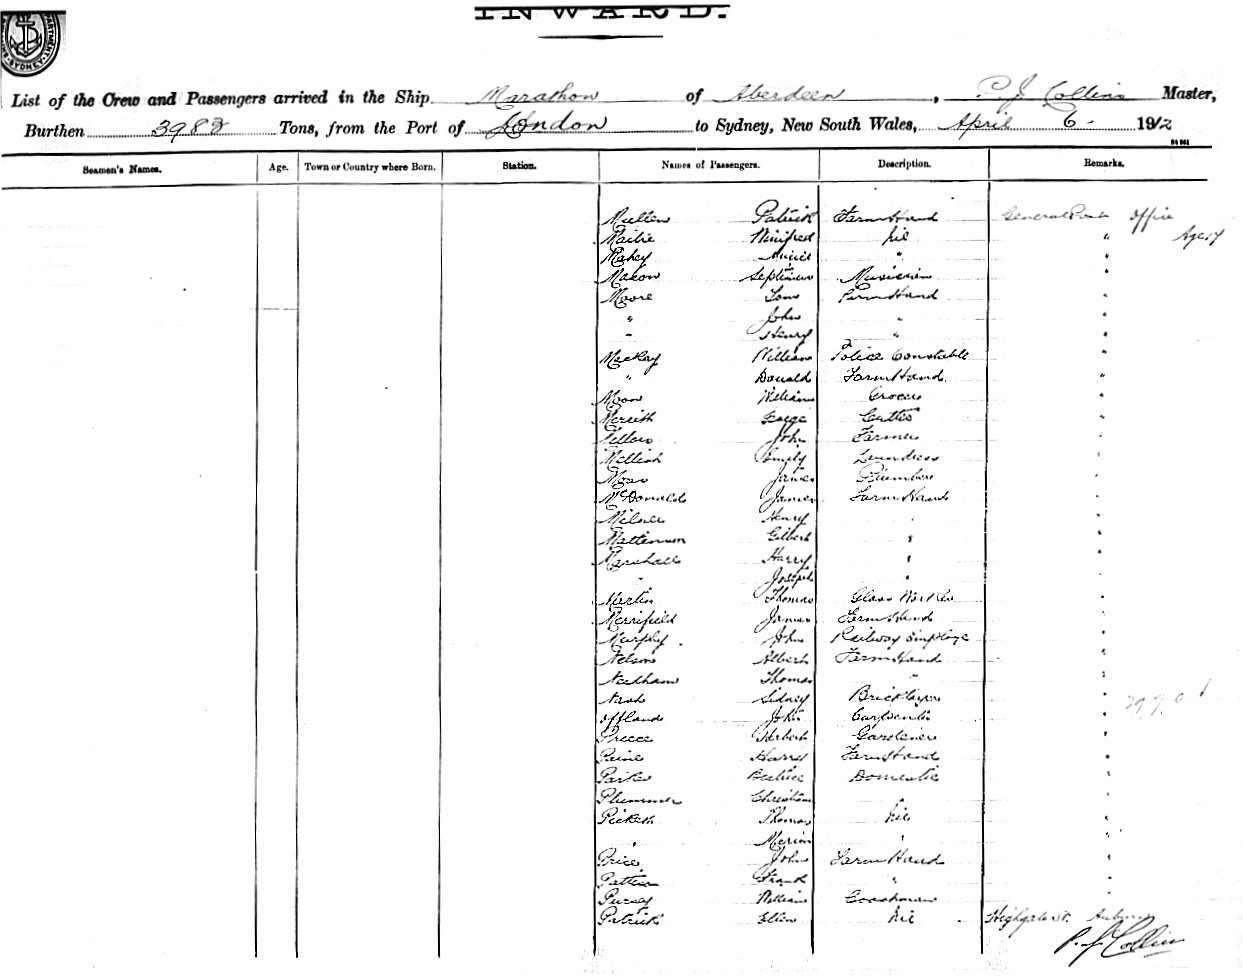 INWARD.
List of the Crew and Passengers arrived in the Ship Marathon of Aberdeen, P. J. Collins Master,
Burthen 3983 Tons, from the Port of London to Sydney, New South Wales, April 6 - 1912
Seamen's Names. Age. Town or Country where Born. Station. Names of Passengers. Description. Remarks.
Mullen Patrick Farm Hand General Post Office
Winifred Nil "
Mahey "
Macon Septimus Musician "
Moore Tom Farm Hand "
" John " "
" Henry " "
Mackay William Police Constable "
" Donald Farm Hand "
Moon William Grocer "
George Cutter "
John Farmer "
Mellish Emily Laundress "
Moss James Plumber "
McDonald James Farm Hand "
Milner Henry " "
Gilbert " "
Marshall Harry " "
" Joseph " "
Martin Thomas Glass Worker "
Merrifield James Farm Hand "
Murphy John Railway Employe "
Nelson Albert Farm Hand "
Thomas " "
Nash Sidney Bricklayer "
Offland John Carpenter "
Preece Herbert Gardener "
Paine Harry Farm Hand "
Parker Beatrice Domestic "
Plummer Christian " "
Picketh Thomas Nil "
" " "
Price John Farm Hand "
Frank " "
William Coachman "
Patrick Ellen Nil Highgate St. Auburn
P. J. Collins